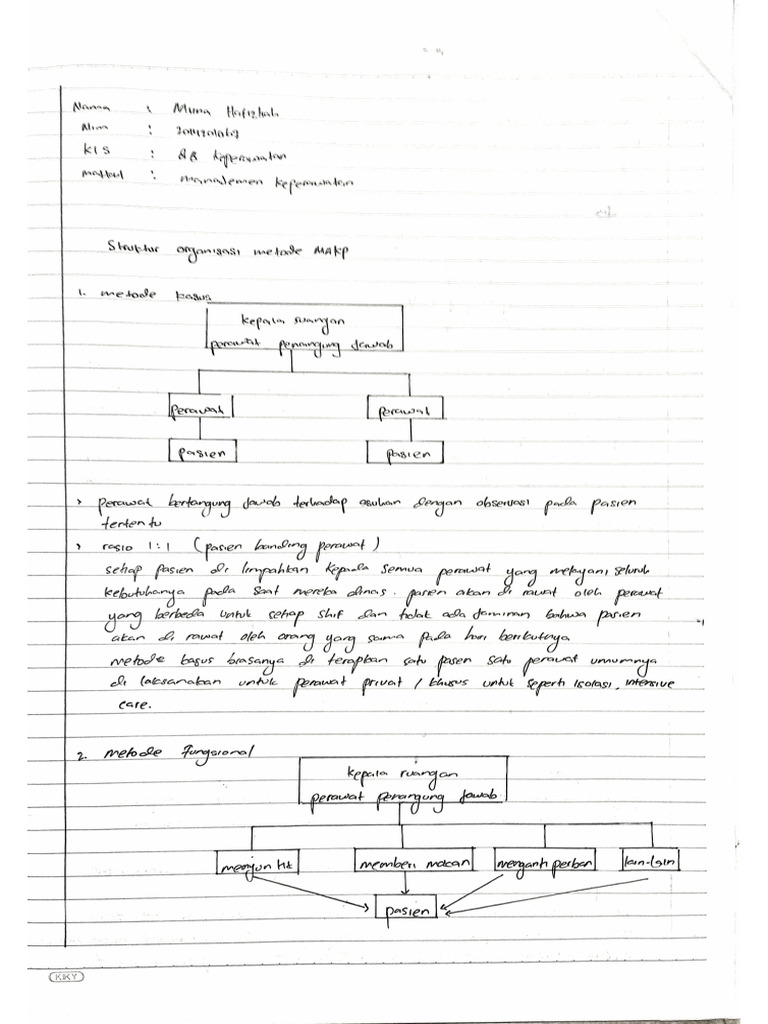 Nama : Muna Hafizhah
Nim :
Kls : 8B Keperawatan
Matkul : manajemen keperawatan
Struktur organisasi metode MAKP
1. metode kasus
kepala ruangan
perawat penangung Jawab
perawat perawat
pasien pasien
> perawat bertangung Jawab terhadap asuhan dengan observasi pada pasien
tertentu
> rasio 1:1 (pasien banding perawat)
setiap pasien di limpahkan kepada semua perawat yang melayani seluruh
kebutuhanya pada saat mereka dinas. pasen akan di rawat oleh perawat
yang berbeda untuk setiap shif dan tidak ada jaminan bahwa pasien
akan di rawat oleh orang yang sama pada hari berikutnya
metode kasus biasanya di terapkan satu pasen satu perawat umumnya
di laksanakan untuk perawat privat / khusus untuk seperti isolasi, intensive
care.
2. metode Fungsional
kepala ruangan
perawat penangung Jawab
menyuntik memberi makan menganti perban lain-lain
pasien
KIKY